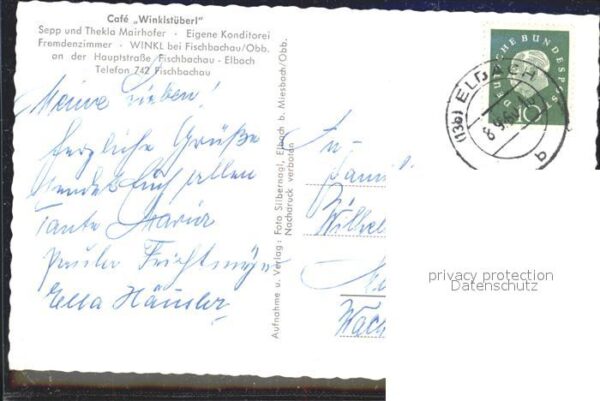 Café „Winklstüberl"
Sepp und Thekla Mairhofer · Eigene Konditorei
Fremdenzimmer · WINKL bei Fischbachau/Obb.
an der Hauptstraße Fischbachau - Elbach
Telefon 742 Fischbachau
Meine Lieben!
Herzliche Grüße
sendet Euch allen
Tante Maria
Paula
Ella Häusler
Aufnahme u. Verlag: Foto Silbernagl, Elbach b. Miesbach/Obb.
Nachdruck verboten
DEUTSCHE BUNDESPOST
10
(13b) ELBACH
b
An
Famil
Wilhel
privacy protection
Datenschutz